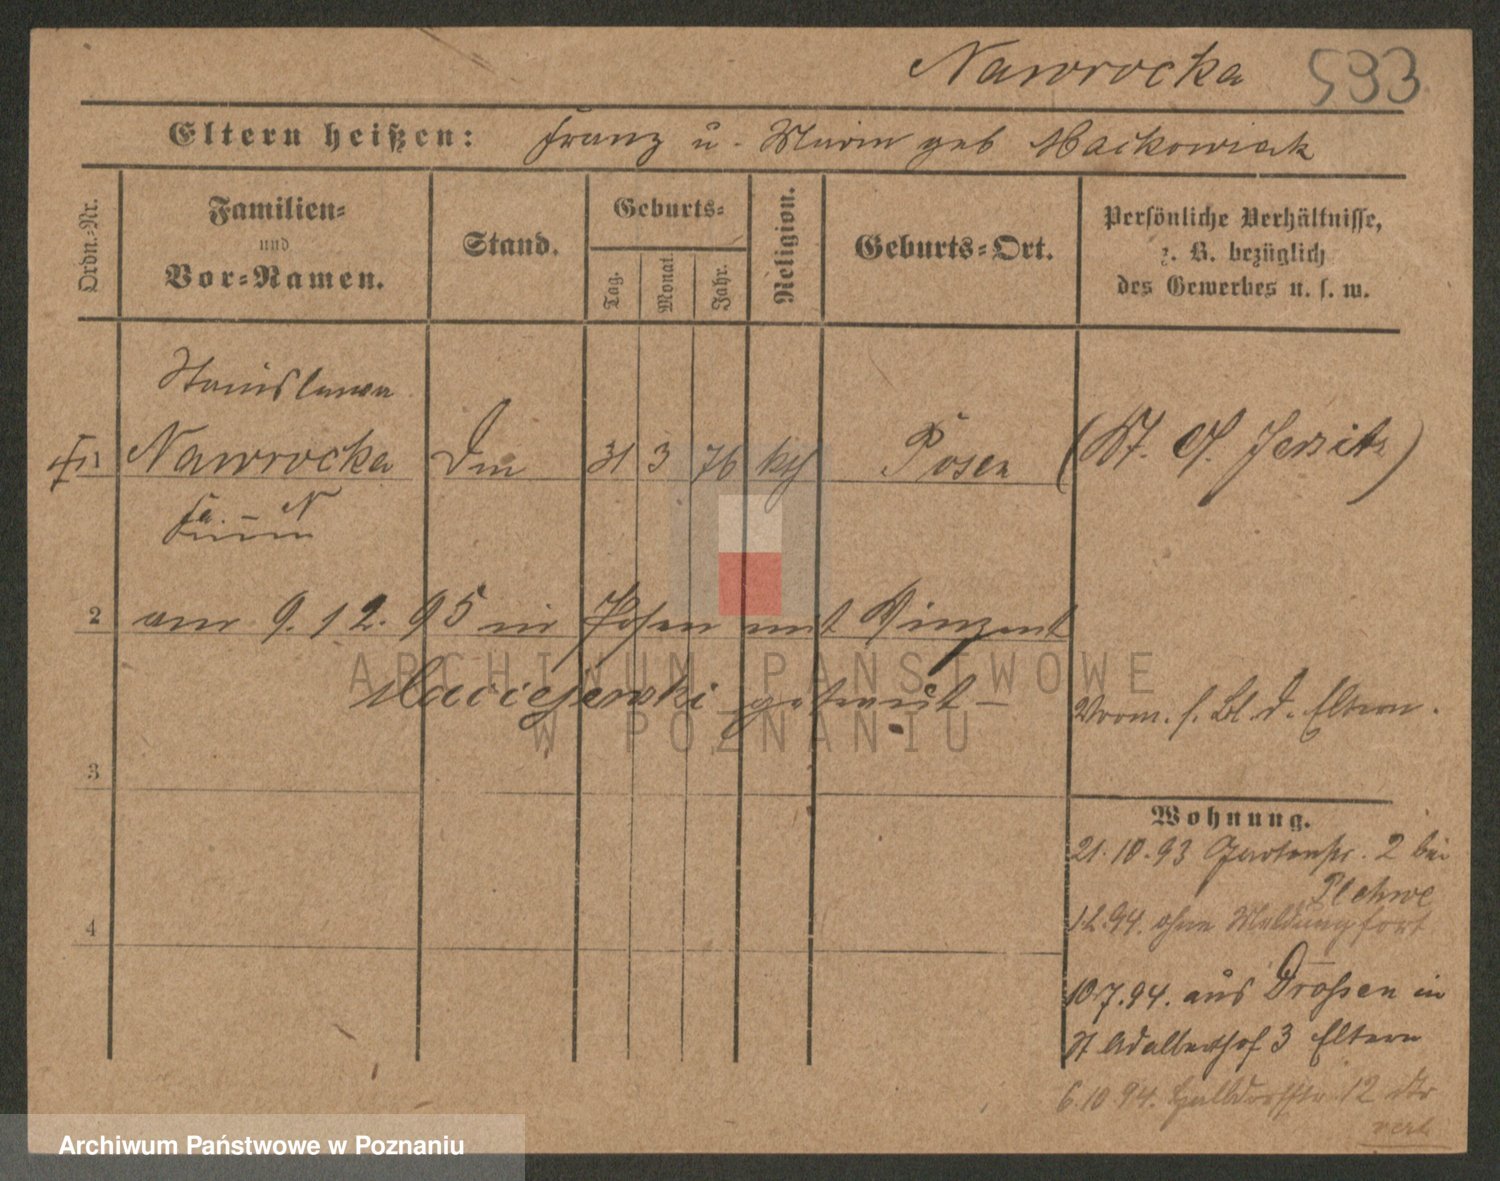 Nawrocka 593
Eltern heißen: Franz u. Marie geb Maćkowiak
Ordn.-Nr.
Familien-
und
Vor-Namen.
Stand.
Geburts-
Tag.
Monat.
Jahr.
Religion.
Geburts-Ort.
Persönliche Verhältnisse,
z. B. bezüglich
des Gewerbes u. s. w.
Stanislawa
1 Nawrocka 31 3 76 kth Posen (Bl. Jersitz)
2 am 9.12.95 in Posen mit Vinzent
Maciejewski getraut –
Vorm. s. Bl. d. Eltern.
3
Wohnung.
21.10.93 Gartenstr. 2 bei
Plehwe
4
1.2.94. ohne Meldung fort
10.7.94. aus Drossen in
St Adalberthof 3 Eltern
6.10.94. Halldorfstr 12
ARCHIWUM PAŃSTWOWE
W POZNANIU
Archiwum Państwowe w Poznaniu